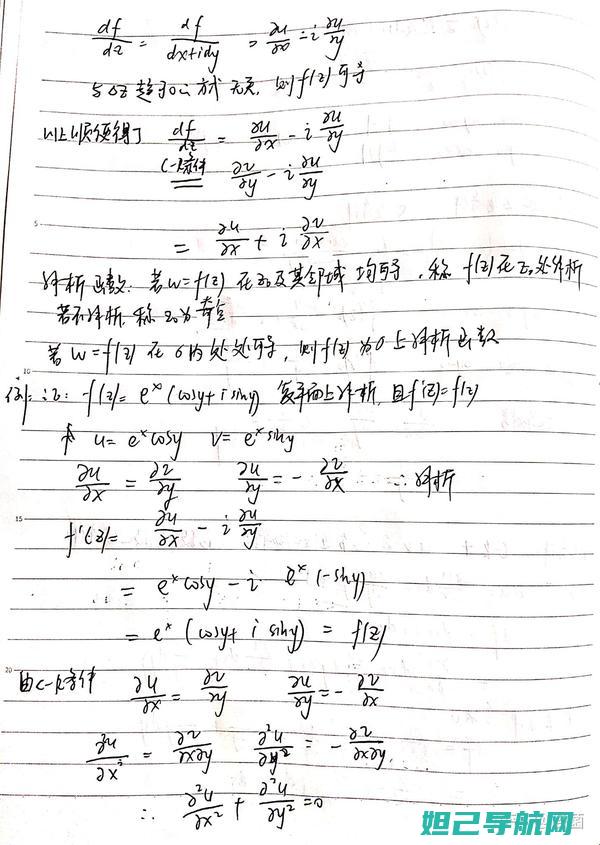 df/dz = df/(dx+idy) = ∂u/∂x - i ∂u/∂y
与Δz趋于0的方式无关, 则f(z)可导
df/dz = ∂u/∂x - i ∂u/∂y
C-R条件 ∂v/∂y - i ∂u/∂y
5
= ∂u/∂x + i ∂v/∂x
解析函数: 若w=f(z) 在z₀及其邻域均可导, 称f(z)在z₀处解析
若不解析, 称z₀为奇点
若w=f(z) 在σ内处处可导, 则f(z)为σ上解析函数
10
例: 证: f(z)= eˣ(cosy+isiny) 复平面上解析, 且f'(z)=f(z)
u= eˣcosy v= eˣsiny
∂u/∂x = ∂v/∂y ∂u/∂y = - ∂v/∂x ∴解析
15
f'(z)= ∂u/∂x - i ∂u/∂y
= eˣcosy - i eˣ(-siny)
= eˣ(cosy+ i siny) = f(z)
20
由C-R条件 ∂u/∂x = ∂v/∂y ∂u/∂y = - ∂v/∂x
∂²u/∂x² = ∂v/∂x∂y ∂²u/∂y² = - ∂v/∂x∂y
∴ ∂²u/∂x² + ∂²u/∂y² =0
妲己导航网